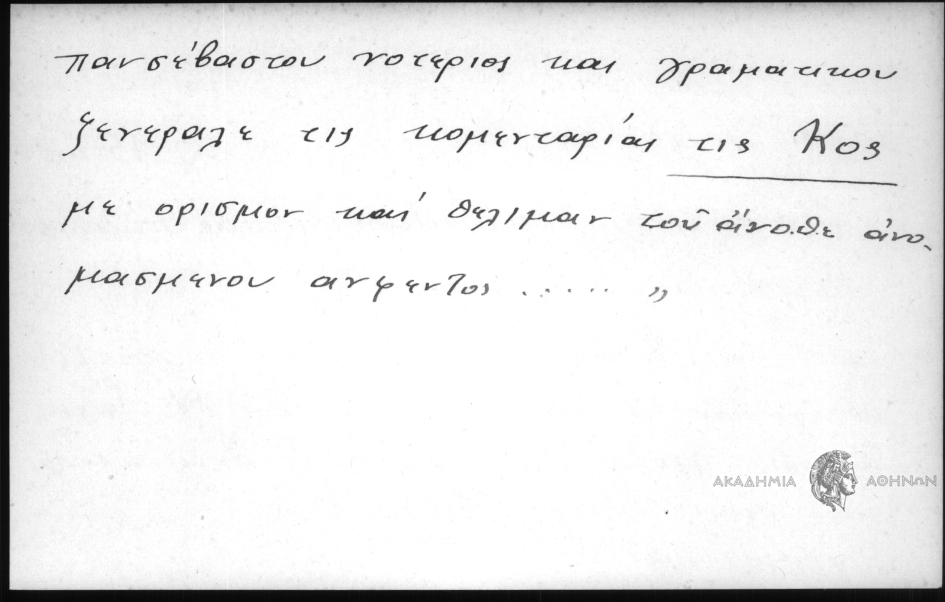 πανσέβαστου νοτεριος και γραματικου
ζενεραλε τις κομενταρίας τις Κος
με ορισμον και θελιμαν του άνοθε άνο-
μασμενου αυφεντος ..... „
ΑΚΑΔΗΜΙΑ ΑΘΗΝΩΝ